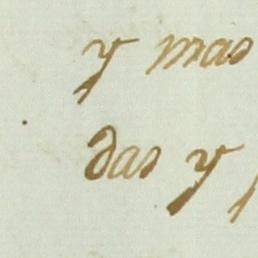 y mas
das y